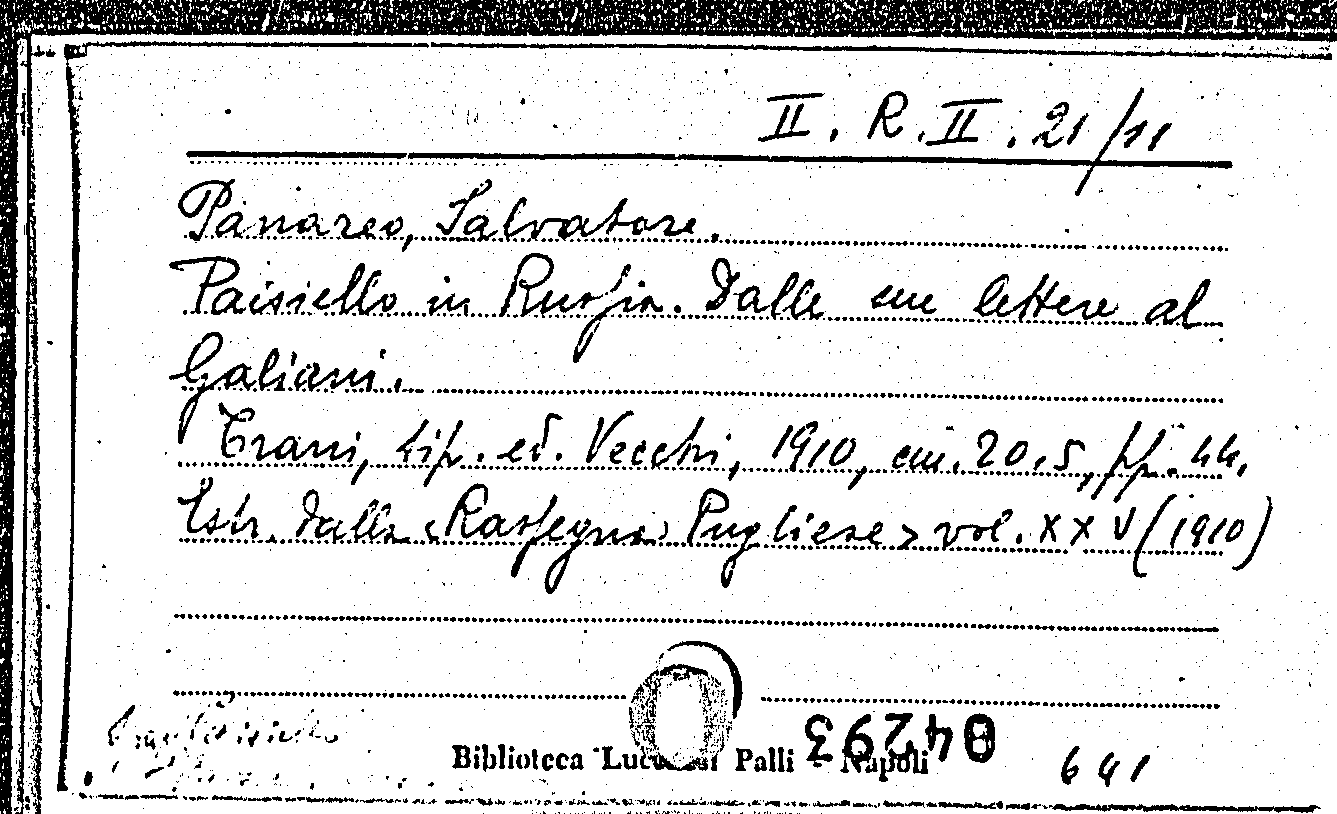 II. R. II. 21/11
Panareo, Salvatore.
Paisiello in Russia. Dalle sue lettere al
Galiani.
Trani, tip. ed. Vecchi, 1910, cm. 20,5, pp. 44.
Estr. dalla <Rassegna Pugliese> vol. XXV (1910)
04293
Biblioteca Lucchesi Palli - Napoli
641